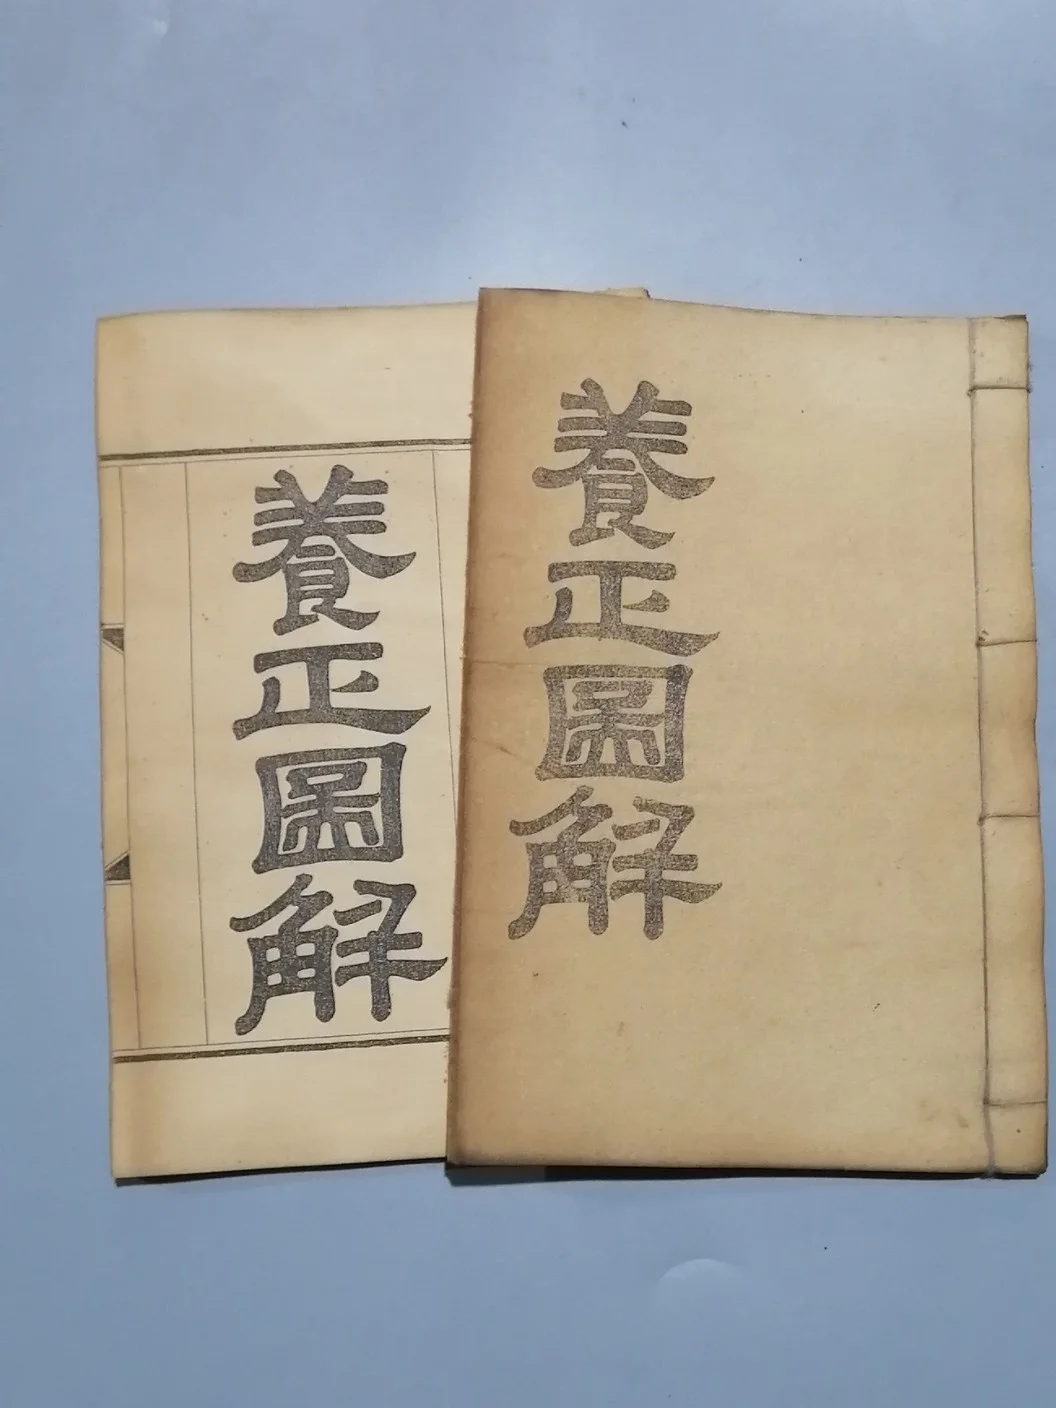 養正圖解
養正圖解